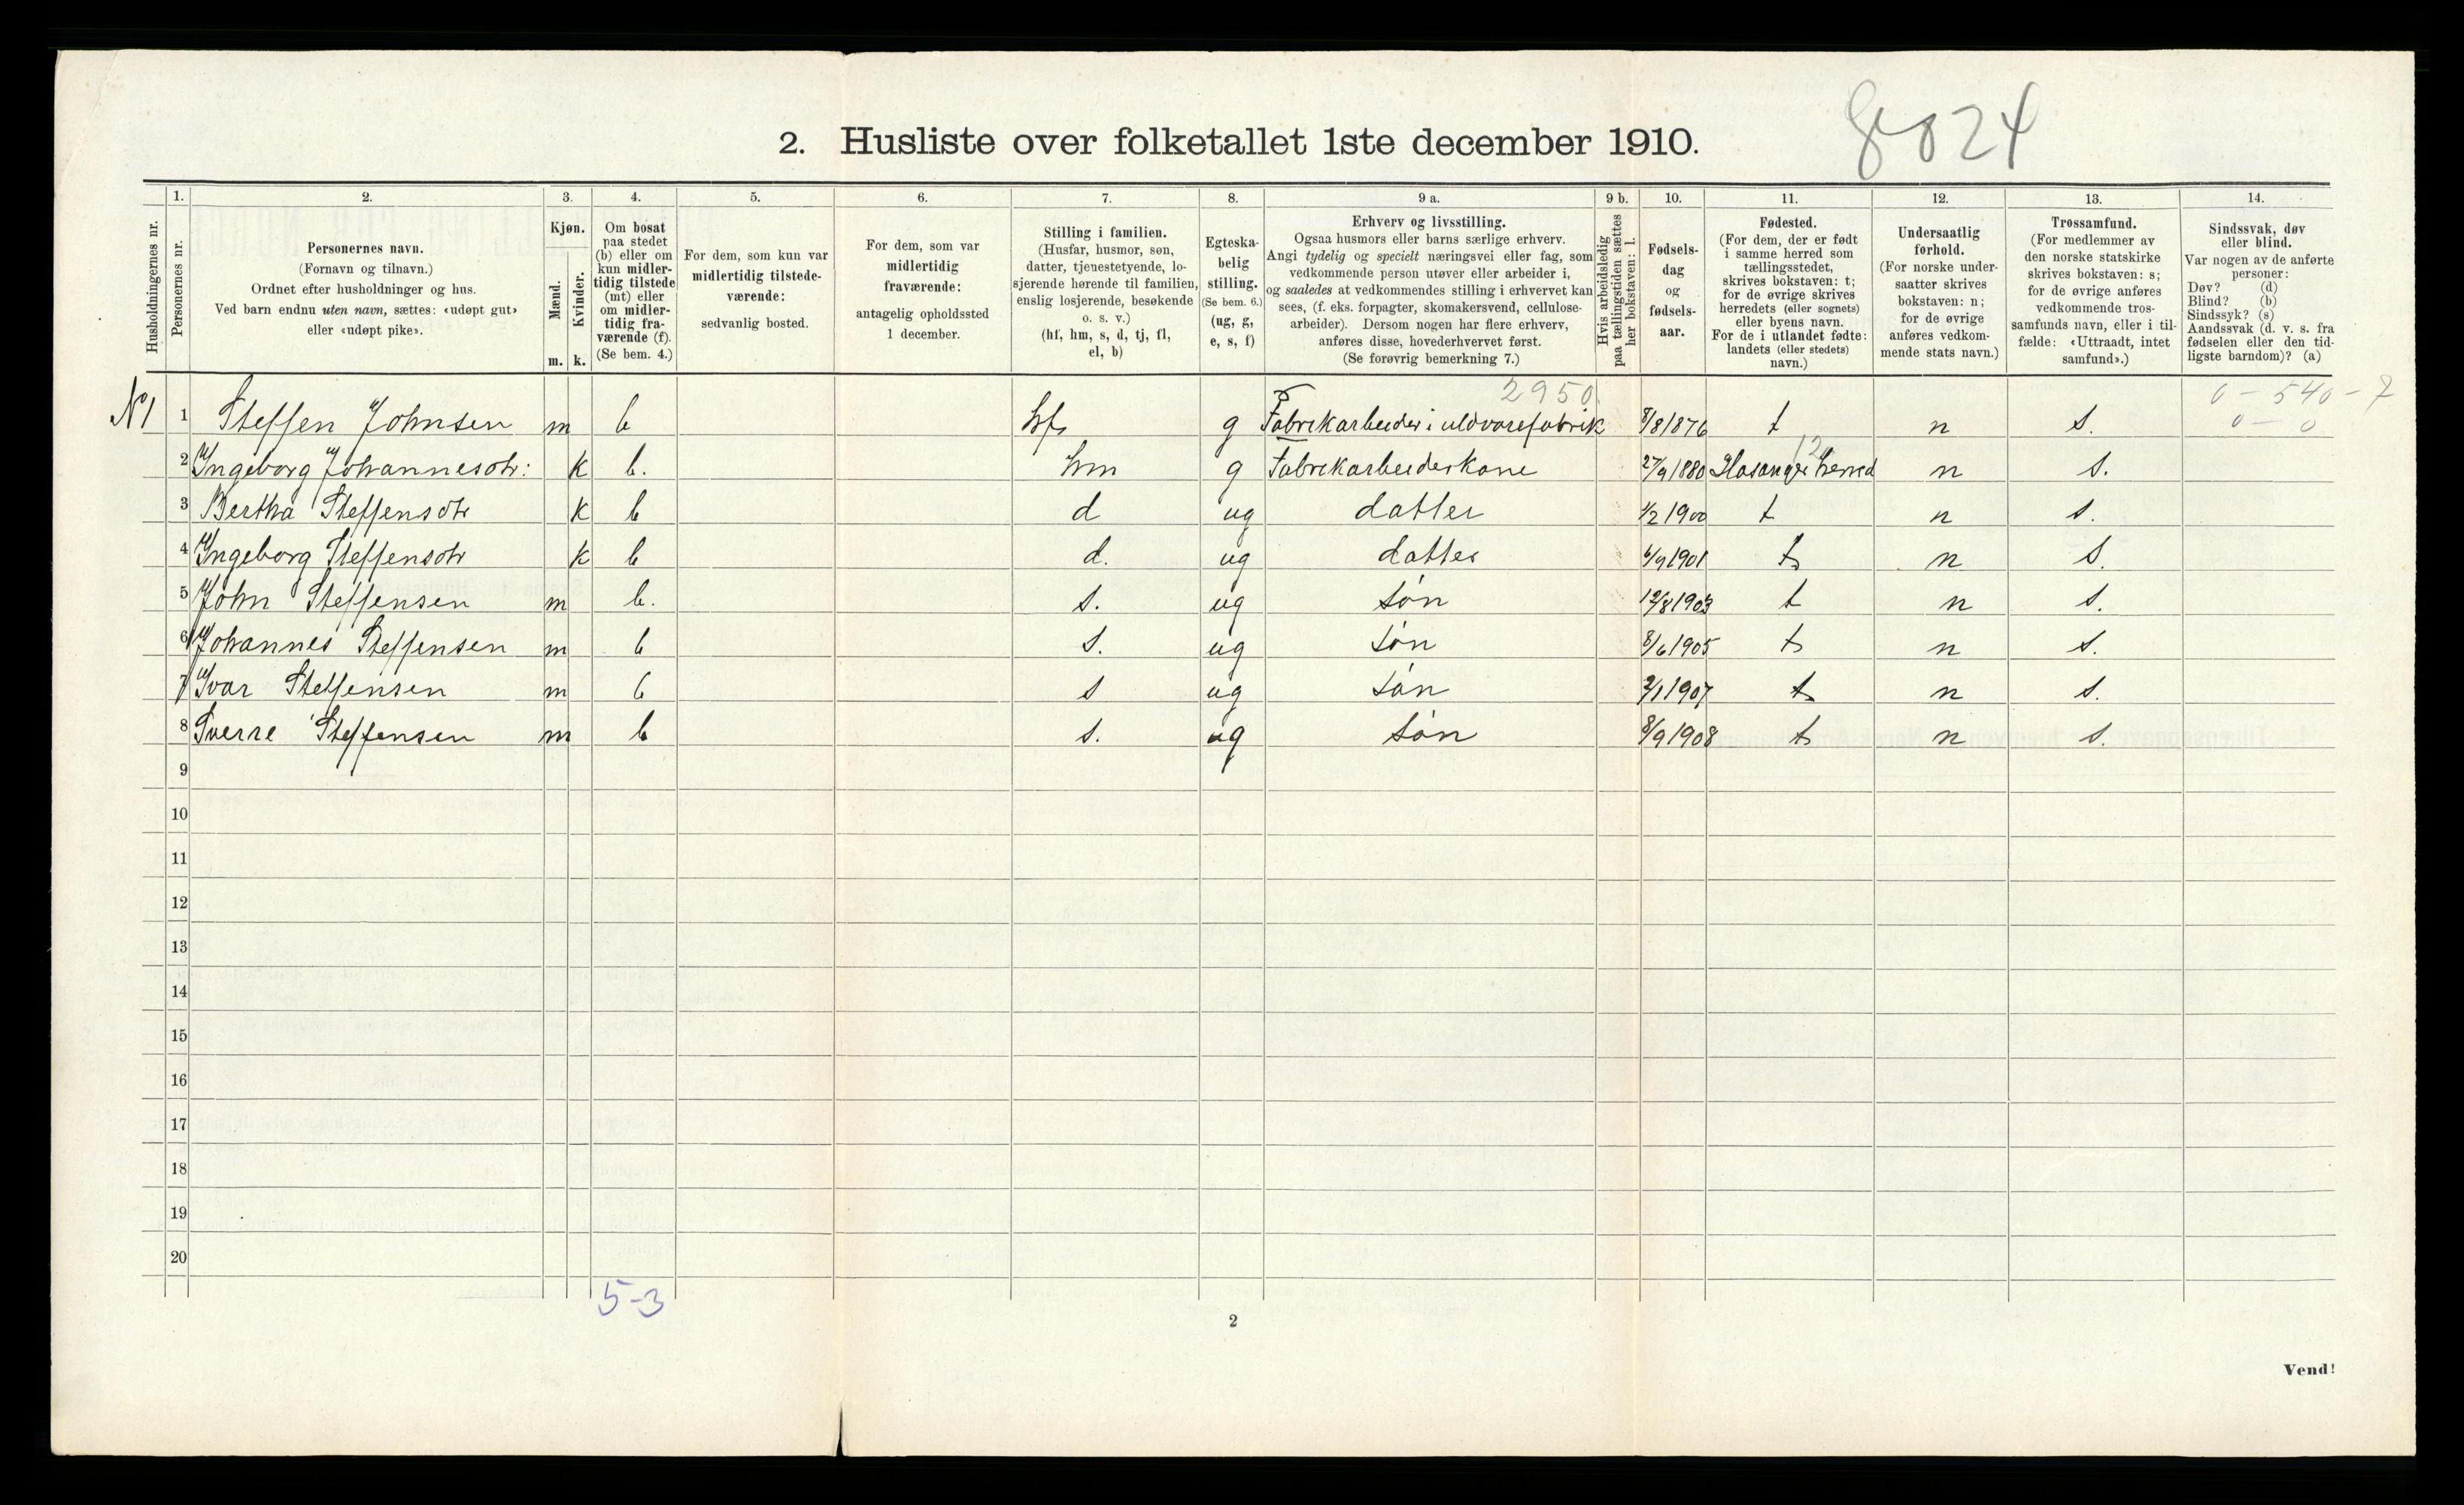 2. Husliste over folketallet 1ste december 1910.
8024
Husholdningernes nr.
1. Personernes nr.
2. Personernes navn. (Fornavn og tilnavn.) Ordnet efter husholdninger og hus. Ved barn endnu uten navn, sættes: «udøpt gut» eller «udøpt pike».
3. Kjøn. Mænd. m. Kvinder. k.
4. Om bosat paa stedet (b) eller om kun midlertidig tilstede (mt) eller om midlertidig fraværende (f). (Se bem. 4.)
5. For dem, som kun var midlertidig tilstedeværende: sedvanlig bosted.
6. For dem, som var midlertidig fraværende: antagelig opholdssted 1 december.
7. Stilling i familien. (Husfar, husmor, søn, datter, tjenestetyende, losjerende hørende til familien, enslig losjerende, besøkende o. s. v.) (hf, hm, s, d, tj, fl, el, b)
8. Egteskabelig stilling. (Se bem. 6.) (ug, g, e, s, f)
9 a. Erhverv og livsstilling. Ogsaa husmors eller barns særlige erhverv. Angi tydelig og specielt næringsvei eller fag, som vedkommende person utøver eller arbeider i, og saaledes at vedkommendes stilling i erhvervet kan sees, (f. eks. forpagter, skomakersvend, cellulosearbeider). Dersom nogen har flere erhverv, anføres disse, hovederhvervet først. (Se forøvrig bemerkning 7.)
9 b. Hvis arbeidsledig paa tællingstiden sættes her bokstaven: l.
10. Fødselsdag og fødselsaar.
11. Fødested. (For dem, der er født i samme herred som tællingsstedet, skrives bokstaven: t; for de øvrige skrives herredets (eller sognets) eller byens navn. For de i utlandet fødte: landets (eller stedets) navn.)
12. Undersaatlig forhold. (For norske undersaatter skrives bokstaven: n; for de øvrige anføres vedkommende stats navn.)
13. Trossamfund. (For medlemmer av den norske statskirke skrives bokstaven: s; for de øvrige anføres vedkommende trossamfunds navn, eller i tilfælde: «Uttraadt, intet samfund».)
14. Sindssvak, døv eller blind. Var nogen av de anførte personer: Døv? (d) Blind? (b) Sindssyk? (s) Aandssvak (d. v. s. fra fødselen eller den tidligste barndom)? (a)
2950. 0 - 540 - 7
0 - 0
N1 1 Steffen Johnsen m b hf. g Fabrikarbeider i uldvarefabrik 8/8 1876 t n s.
12
2 Ingeborg Johannesdtr: k b. hm g Fabrikarbeiderkone 27/9 1880 Hosanger herred n s.
3 Bertha Steffensdtr k b d ug datter 1/2 1900 t n s.
4 Ingeborg Steffensdtr k b d. ug datter 6/9 1901 t n s.
5 John Steffensen m b. s. ug søn 12/8 1903 t n s.
6 Johannes Steffensen m b s. ug søn 8/6 1905 t n s.
7 Ivar Steffensen m b s ug søn 2/1 1907 t n s.
8 Sverre Steffensen m b s. ug søn 8/9 1908 t n s.
9
10
11
12
13
14
15
16
17
18
19
20
5-3
2
Vend!